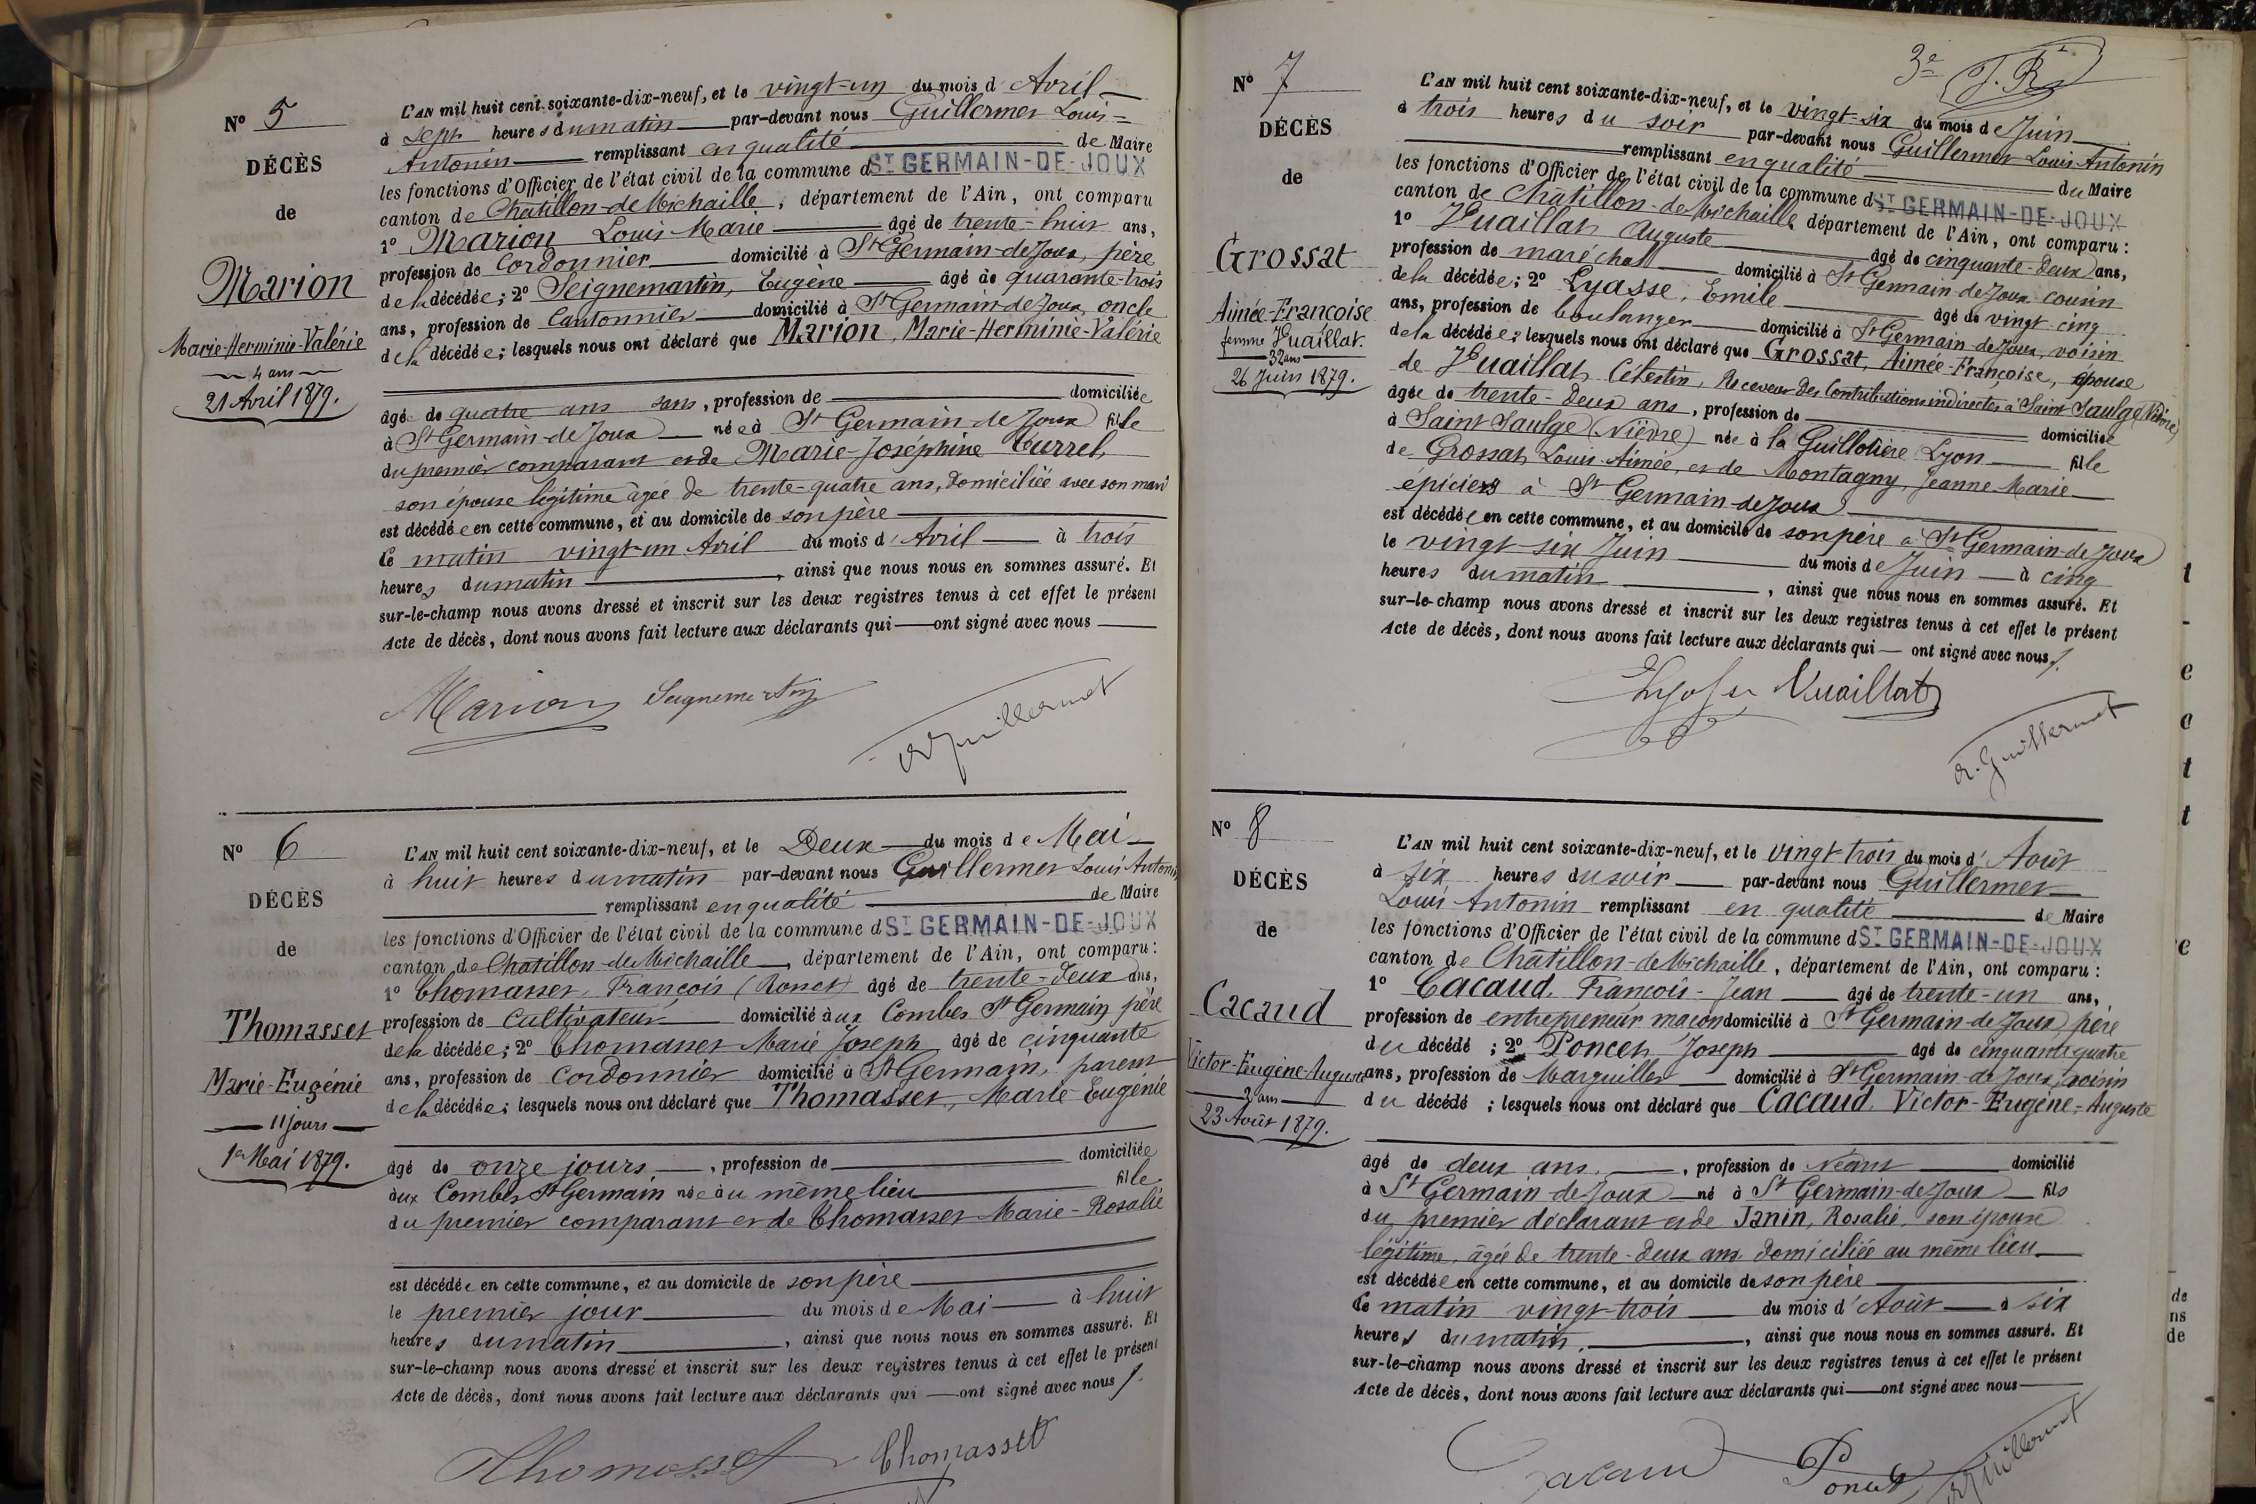 N° 5
DÉCÈS
de
Marion
Marie-Herminie-Valérie
4 ans
21 Avril 1879.
L'AN mil huit cent soixante-dix-neuf, et le vingt-un du mois d'Avril
à sept heures du matin par-devant nous Guillermet Louis=
Antonin remplissant en qualité de Maire
les fonctions d'Officier de l'état civil de la commune d ST GERMAIN-DE-JOUX
canton de Châtillon-de-Michaille, département de l'Ain, ont comparu
1° Marion Louis Marie âgé de trente-huit ans,
profession de Cordonnier domicilié à St Germain-de-Joux, père
de la décédée; 2° Seignemartin, Eugène âgé de quarante-trois
ans, profession de Cantonnier domicilié à St Germain-de-Joux, oncle
de la décédée; lesquels nous ont déclaré que Marion, Marie-Herminie-Valérie
âgée de quatre ans sans, profession de domiciliée
à St Germain-de-Joux née à St Germain de Joux fille
du premier comparant et de Marie-Joséphine Turrel,
son épouse légitime âgée de trente-quatre ans, domiciliée avec son mari
est décédée en cette commune, et au domicile de son père
Ce matin vingt-un Avril du mois d'Avril à trois
heures du matin, ainsi que nous nous en sommes assuré. Et
sur-le-champ nous avons dressé et inscrit sur les deux registres tenus à cet effet le présent
Acte de décès, dont nous avons fait lecture aux déclarants qui ont signé avec nous
Marion Seignemartin
Guillermet
N° 6
DÉCÈS
de
Thomasset
Marie-Eugénie
11 jours
1er Mai 1879.
L'AN mil huit cent soixante-dix-neuf, et le Deux du mois de Mai
à huit heures du matin par-devant nous Guillermet Louis Antonin
remplissant en qualité de Maire
les fonctions d'Officier de l'état civil de la commune d ST GERMAIN-DE-JOUX
canton de Châtillon-de-Michaille, département de l'Ain, ont comparu:
1° Thomasset, François (Ronet) âgé de trente-deux ans,
profession de Cultivateur domicilié aux Combes St Germain père
de la décédée; 2° Thomasset Marie Joseph âgé de cinquante
ans, profession de Cordonnier domicilié à St Germain, parent
de la décédée; lesquels nous ont déclaré que Thomasset, Marie Eugénie
âgé de onze jours, profession de domiciliée
aux Combes St Germain née au même lieu fille
du premier comparant et de Thomasset Marie-Rosalie
est décédée en cette commune, et au domicile de son père
le premier jour du mois de Mai à huit
heures du matin, ainsi que nous nous en sommes assuré. Et
sur-le-champ nous avons dressé et inscrit sur les deux registres tenus à cet effet le présent
Acte de décès, dont nous avons fait lecture aux déclarants qui ont signé avec nous
Thomasset Thomasset
3e J. R.
N° 7
DÉCÈS
de
Grossat
Aimée-Françoise
femme Vuaillat.
32 ans
26 Juin 1879.
L'AN mil huit cent soixante-dix-neuf, et le vingt-six du mois de Juin
à trois heures du soir par-devant nous Guillermet Louis Antonin
remplissant en qualité du Maire
les fonctions d'Officier de l'état civil de la commune d ST GERMAIN-DE-JOUX
canton de Châtillon-de-Michaille, département de l'Ain, ont comparu:
1° Vuaillat Auguste âgé de cinquante-deux ans,
profession de maréchal domicilié à St Germain-de-Joux cousin
de la décédée; 2° Lyasse, Emile âgé de vingt-cinq
ans, profession de boulanger domicilié à St Germain-de-Joux, voisin
de la décédée; lesquels nous ont déclaré que Grossat, Aimée-Françoise, épouse
de Vuaillat Célestin, Receveur Des Contributions indirectes à Saint Saulge (Nièvre)
âgée de trente-deux ans, profession de domiciliée
à Saint Saulge (Nièvre) née à la Guillotière Lyon fille
de Grossat, Louis-Aimée, et de Montagny, Jeanne-Marie
épiciers à St Germain-de-Joux
est décédée en cette commune, et au domicile de son père à St Germain-de-Joux
le vingt-six Juin du mois de Juin à cinq
heures du matin, ainsi que nous nous en sommes assuré. Et
sur-le-champ nous avons dressé et inscrit sur les deux registres tenus à cet effet le présent
Acte de décès, dont nous avons fait lecture aux déclarants qui ont signé avec nous
Vuaillat
Guillermet
N° 8
DÉCÈS
de
Cacaud
Victor-Eugène-Auguste
2 ans
23 Août 1879.
L'AN mil huit cent soixante-dix-neuf, et le vingt-trois du mois d'Août
à six heures du soir par-devant nous Guillermet
Louis Antonin remplissant en qualité de Maire
les fonctions d'Officier de l'état civil de la commune d ST GERMAIN-DE-JOUX
canton de Châtillon-de-Michaille, département de l'Ain, ont comparu:
1° Cacaud, François-Jean âgé de trente-un ans,
profession de entrepreneur maçon domicilié à St Germain-de-Joux, père
du décédé; 2° Poncet, Joseph âgé de cinquante quatre
ans, profession de Marguiller domicilié à St Germain-de-Joux, voisin
du décédé; lesquels nous ont déclaré que Cacaud, Victor-Eugène-Auguste
âgé de deux ans, profession de Néant domicilié
à St Germain-de-Joux né à St Germain-de-Joux fils
du premier déclarant et de Janin, Rosalie, son épouse
légitime, âgée de trente-deux ans domiciliée au même lieu
est décédée en cette commune, et au domicile de son père
Ce matin vingt-trois du mois d'Août à six
heures du matin, ainsi que nous nous en sommes assuré. Et
sur-le-champ nous avons dressé et inscrit sur les deux registres tenus à cet effet le présent
Acte de décès, dont nous avons fait lecture aux déclarants qui ont signé avec nous
Cacaud Poncet Guillermet